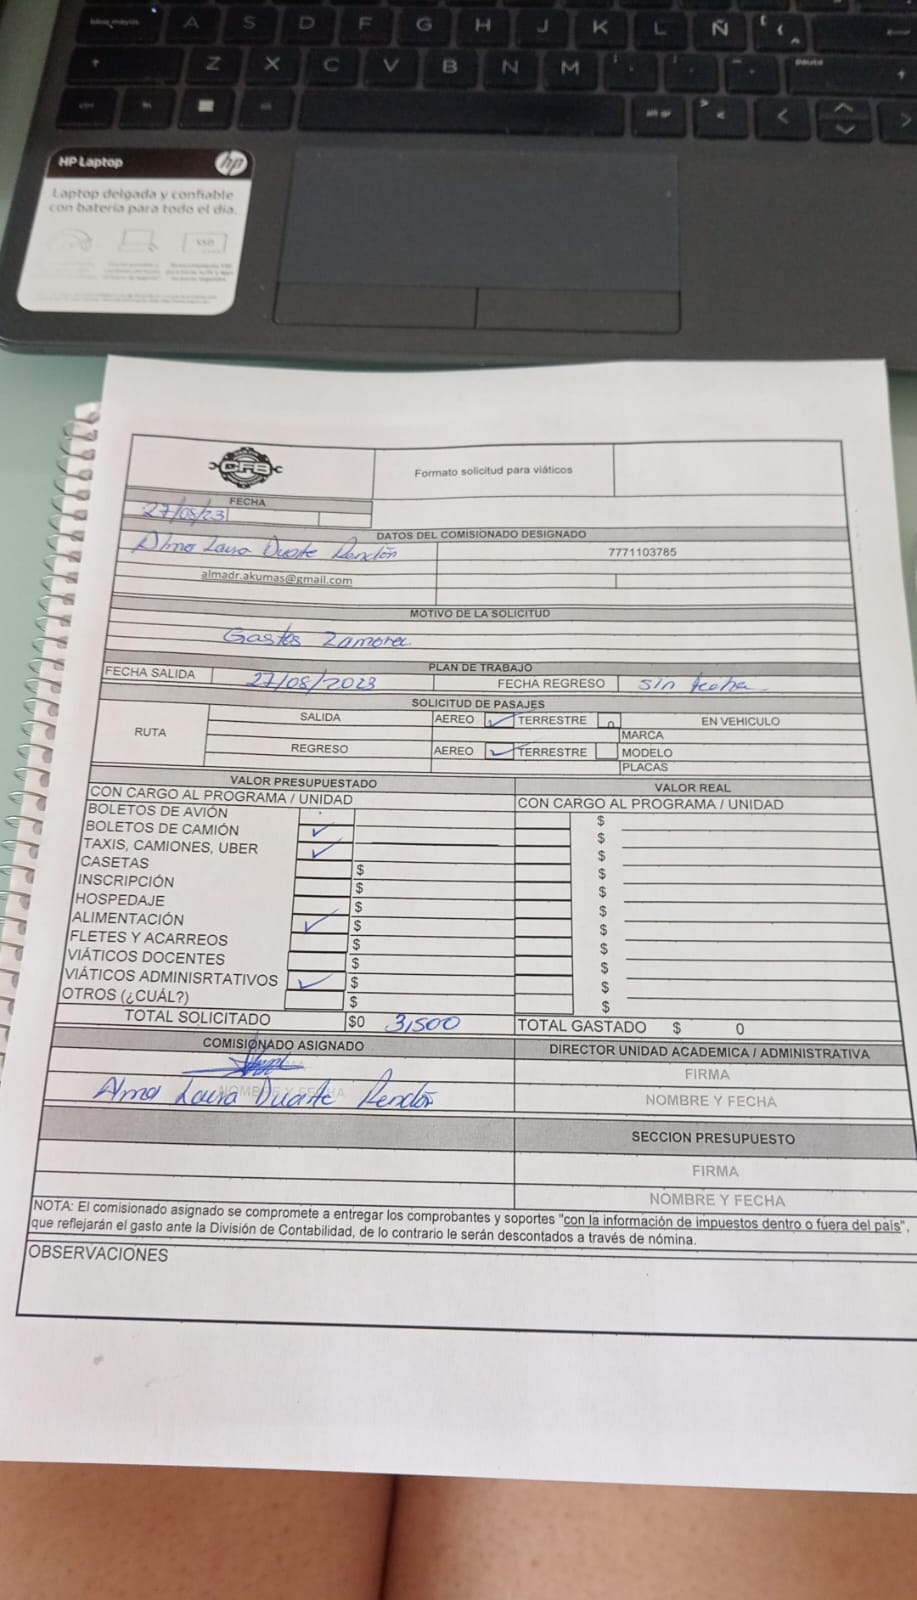 A S D F G H J K L Ñ
Z X C V B N M
HP Laptop hp
Laptop delgada y confiable
con batería para todo el día.
SSD
CFB
Formato solicitud para viáticos
FECHA
27/08/23
DATOS DEL COMISIONADO DESIGNADO
Alma Laura Duarte Rendón 7771103785
almadr.akumas@gmail.com
MOTIVO DE LA SOLICITUD
Gastos Zamora
PLAN DE TRABAJO
FECHA SALIDA 27/08/2023 FECHA REGRESO sin fecha
SOLICITUD DE PASAJES
RUTA SALIDA AEREO ✓ TERRESTRE 0 EN VEHICULO
MARCA
REGRESO AEREO ✓ TERRESTRE MODELO
PLACAS
VALOR PRESUPUESTADO VALOR REAL
CON CARGO AL PROGRAMA / UNIDAD CON CARGO AL PROGRAMA / UNIDAD
BOLETOS DE AVIÓN $
BOLETOS DE CAMIÓN ✓ $
TAXIS, CAMIONES, UBER ✓ $
CASETAS $ $
INSCRIPCIÓN $ $
HOSPEDAJE $ $
ALIMENTACIÓN ✓ $ $
FLETES Y ACARREOS $ $
VIÁTICOS DOCENTES $ $
VIÁTICOS ADMINISRTATIVOS ✓ $ $
OTROS (¿CUÁL?) $ $
TOTAL SOLICITADO $0 3,500 TOTAL GASTADO $ 0
COMISIONADO ASIGNADO DIRECTOR UNIDAD ACADEMICA / ADMINISTRATIVA
FIRMA
Alma Laura Duarte Rendón NOMBRE Y FECHA
SECCION PRESUPUESTO
FIRMA
NOMBRE Y FECHA
NOTA: El comisionado asignado se compromete a entregar los comprobantes y soportes "con la información de impuestos dentro o fuera del país",
que reflejarán el gasto ante la División de Contabilidad, de lo contrario le serán descontados a través de nómina.
OBSERVACIONES